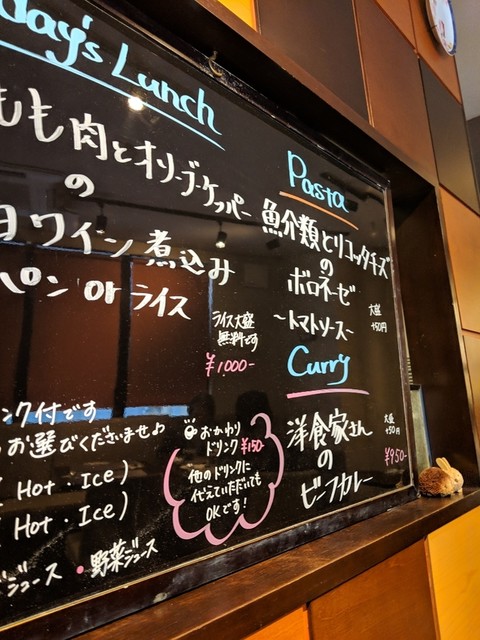 day's Lunch
もも肉とオリーブ・ケッパー
の
ワイン煮込み
パン or ライス
ライス大盛
無料です
¥1000-
Pasta
魚介類とリコッタチーズ
の
ボロネーゼ
~トマトソース~
大盛
+50円
Curry
洋食家さん
の
ビーフカレー
大盛
+50円
¥950-
ンク付です
お選びくださいませ♪
Hot・Ice)
Hot・Ice)
ジュース ・野菜ジュース
おかわり
ドリンク ¥150-
他のドリンクに
代えていただいても
OKです!